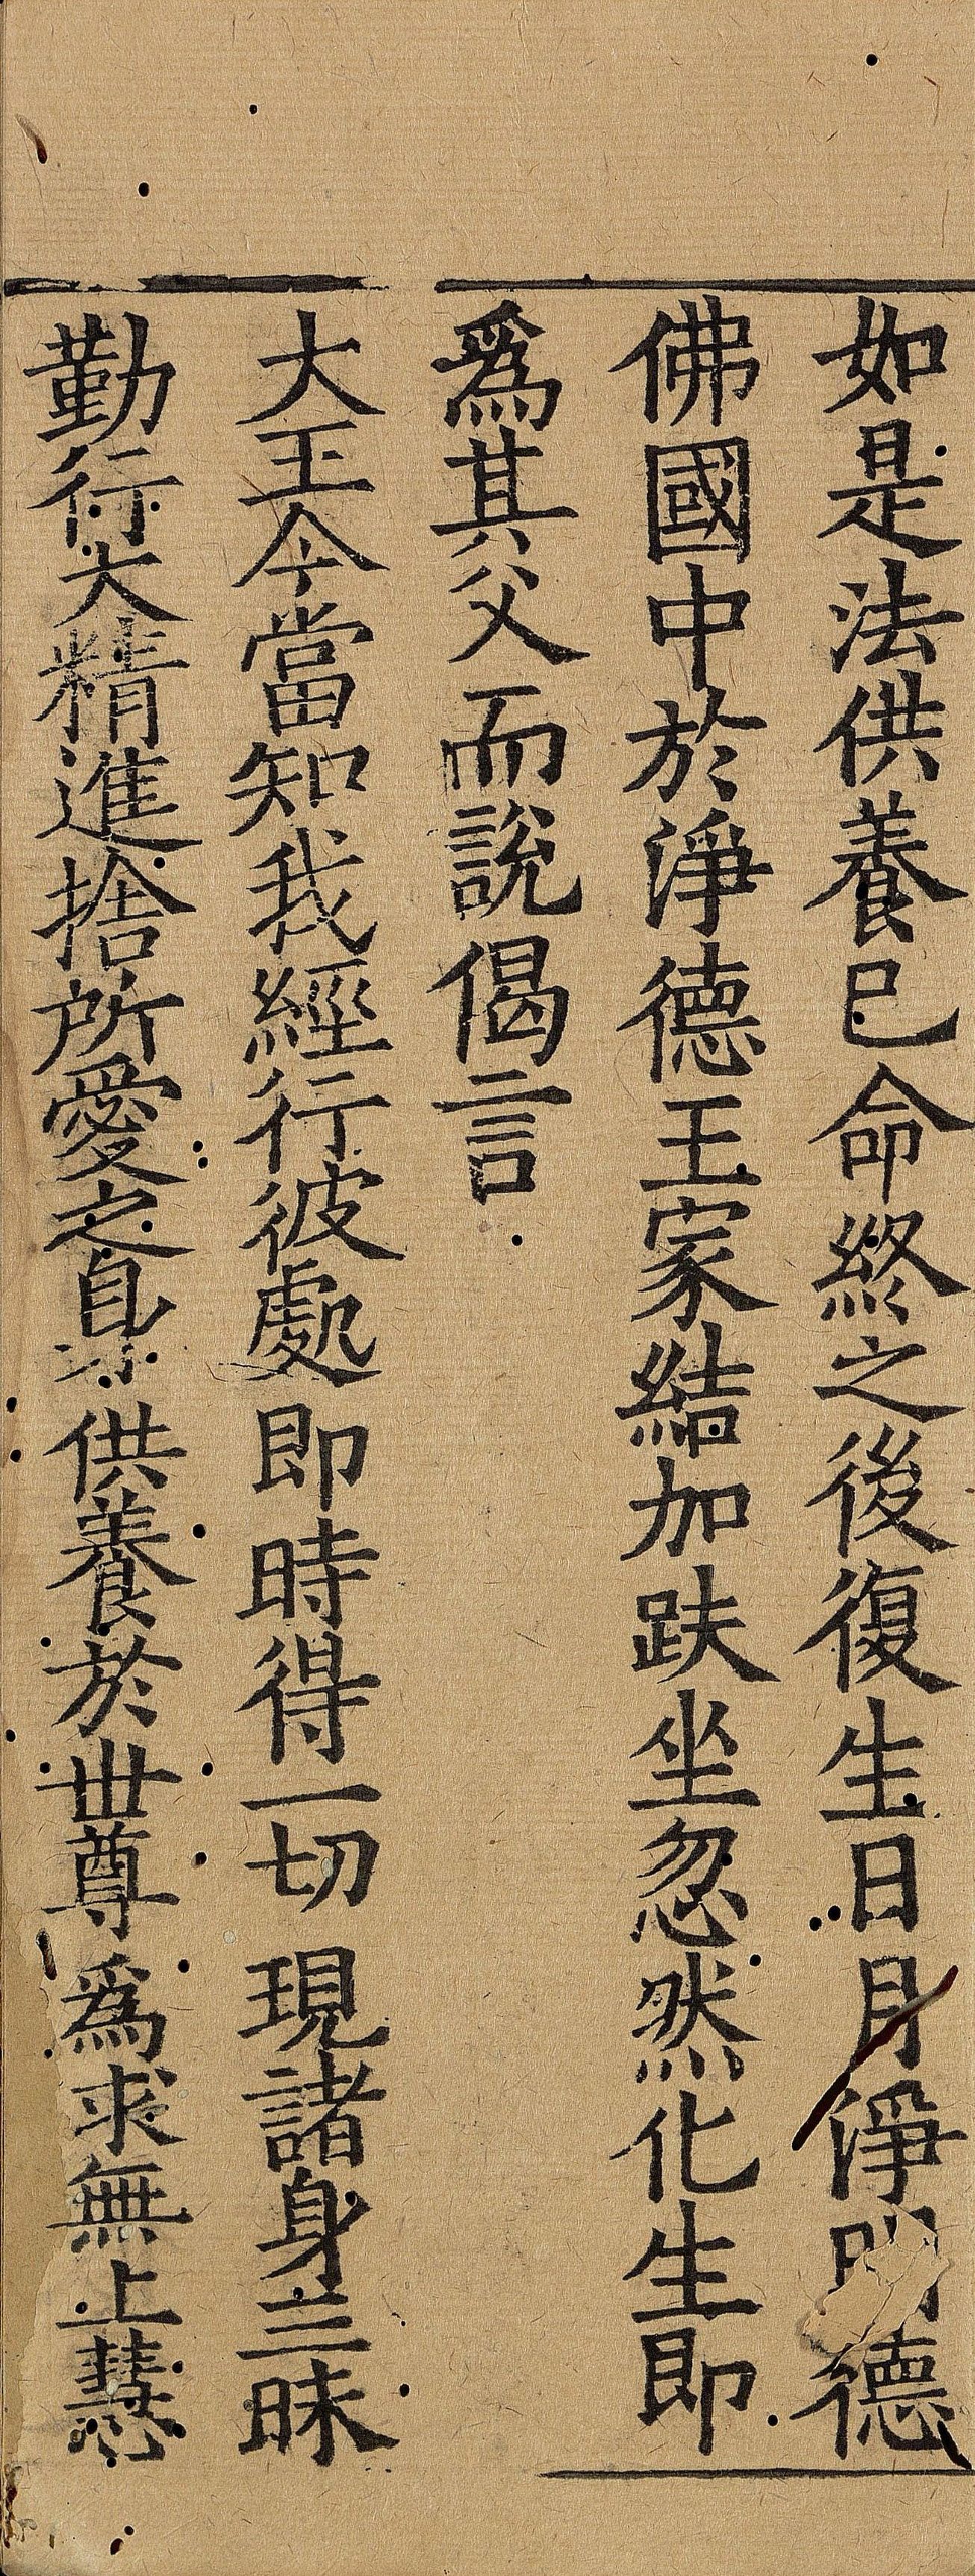 如是法供養已命終之後復生日月淨明德
佛國中於淨德王家結加趺坐忽然化生即
爲其父而說偈言
大王今當知我經行彼處即時得一切現諸身三昧
勤行大精進捨所愛之身供養於世尊爲求無上慧